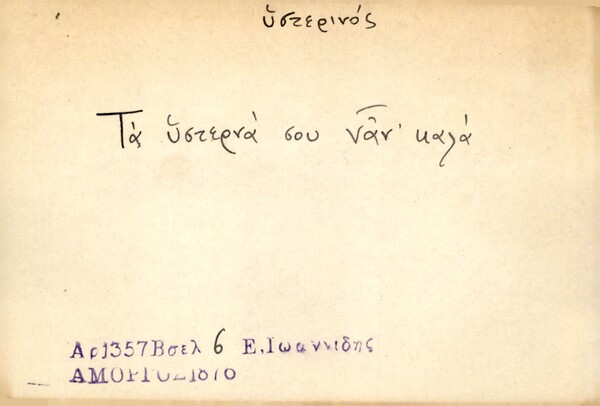 ὑστερινός
Τὰ ὕστερνά σου νἆν' καλά
Αρ1357Βσελ 6 Ε.Ιωαννιδης
ΑΜΟΡΓΟΣ1876